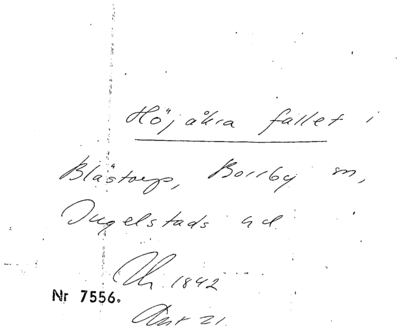 Höjåkra fallet i
Blästorp, Borrby sn,
Ingelstads hd.
1842
Nr 7556.
21.